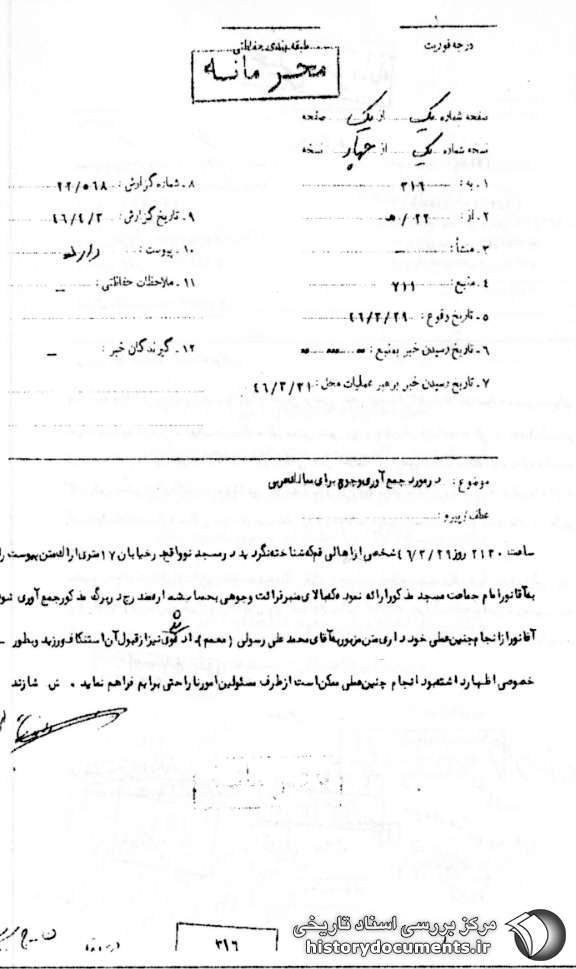 درجه فوریت
طبقه بندی حفاظتی
محرمانه
صفحه شماره یک از یک صفحه
نسخه شماره یک از چهار نسخه
۱ـ به: ۳۱۶
۲ـ از: ۲۲/ ه‍
۳ـ منشأ: ـ
۴ـ منبع: ۷۱۱
۵ـ تاریخ وقوع: ۴۶/۳/۲۹
۶ـ تاریخ رسیدن خبر به منبع:
۷ـ تاریخ رسیدن خبر برهبر عملیات محل: ۴۶/۳/۳۱
۸ـ شماره گزارش: ۲۲/۵۶۸
۹ـ تاریخ گزارش: ۴۶/۴/۳
۱۰ـ پیوست: دارد
۱۱ـ ملاحظات حفاظتی: ـ
۱۲ـ گیرندگان خبر: ـ
موضوع: درمورد جمع آوری وجوه برای
عطف/پیرو:
ساعت ۲۱۳۰ روز ۴۶/۳/۲۹ شخصی از اهالی قم که شناخته نگردید در مسجد نو واقع در خیابان ۱۷متری اراک متن پیوست را
به آقا نورا امام جماعت مسجد مذکور ارائه نمود که بالای منبر قرائت و وجوهی بحساب شماره مندرج در برگ مذکور جمع آوری شود
آقا نورا از انجام چنین عملی خودداری متن مزبور به آقای محمد علی رسولی (معمم) داد که وی نیز از قبول آن استنکاف ورزید و بطور ـ
خصوصی اظهار داشته بود انجام چنین عملی ممکن است از طرف مسئولین امور ناراحتی برایم فراهم نماید. ش
۳۱۶
مرکز بررسی اسناد تاریخی
historydocuments.ir